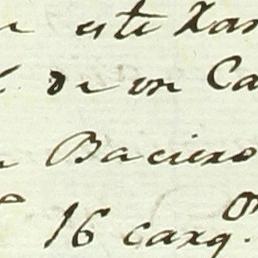 este
de un Ca
Baciero
16 carg.